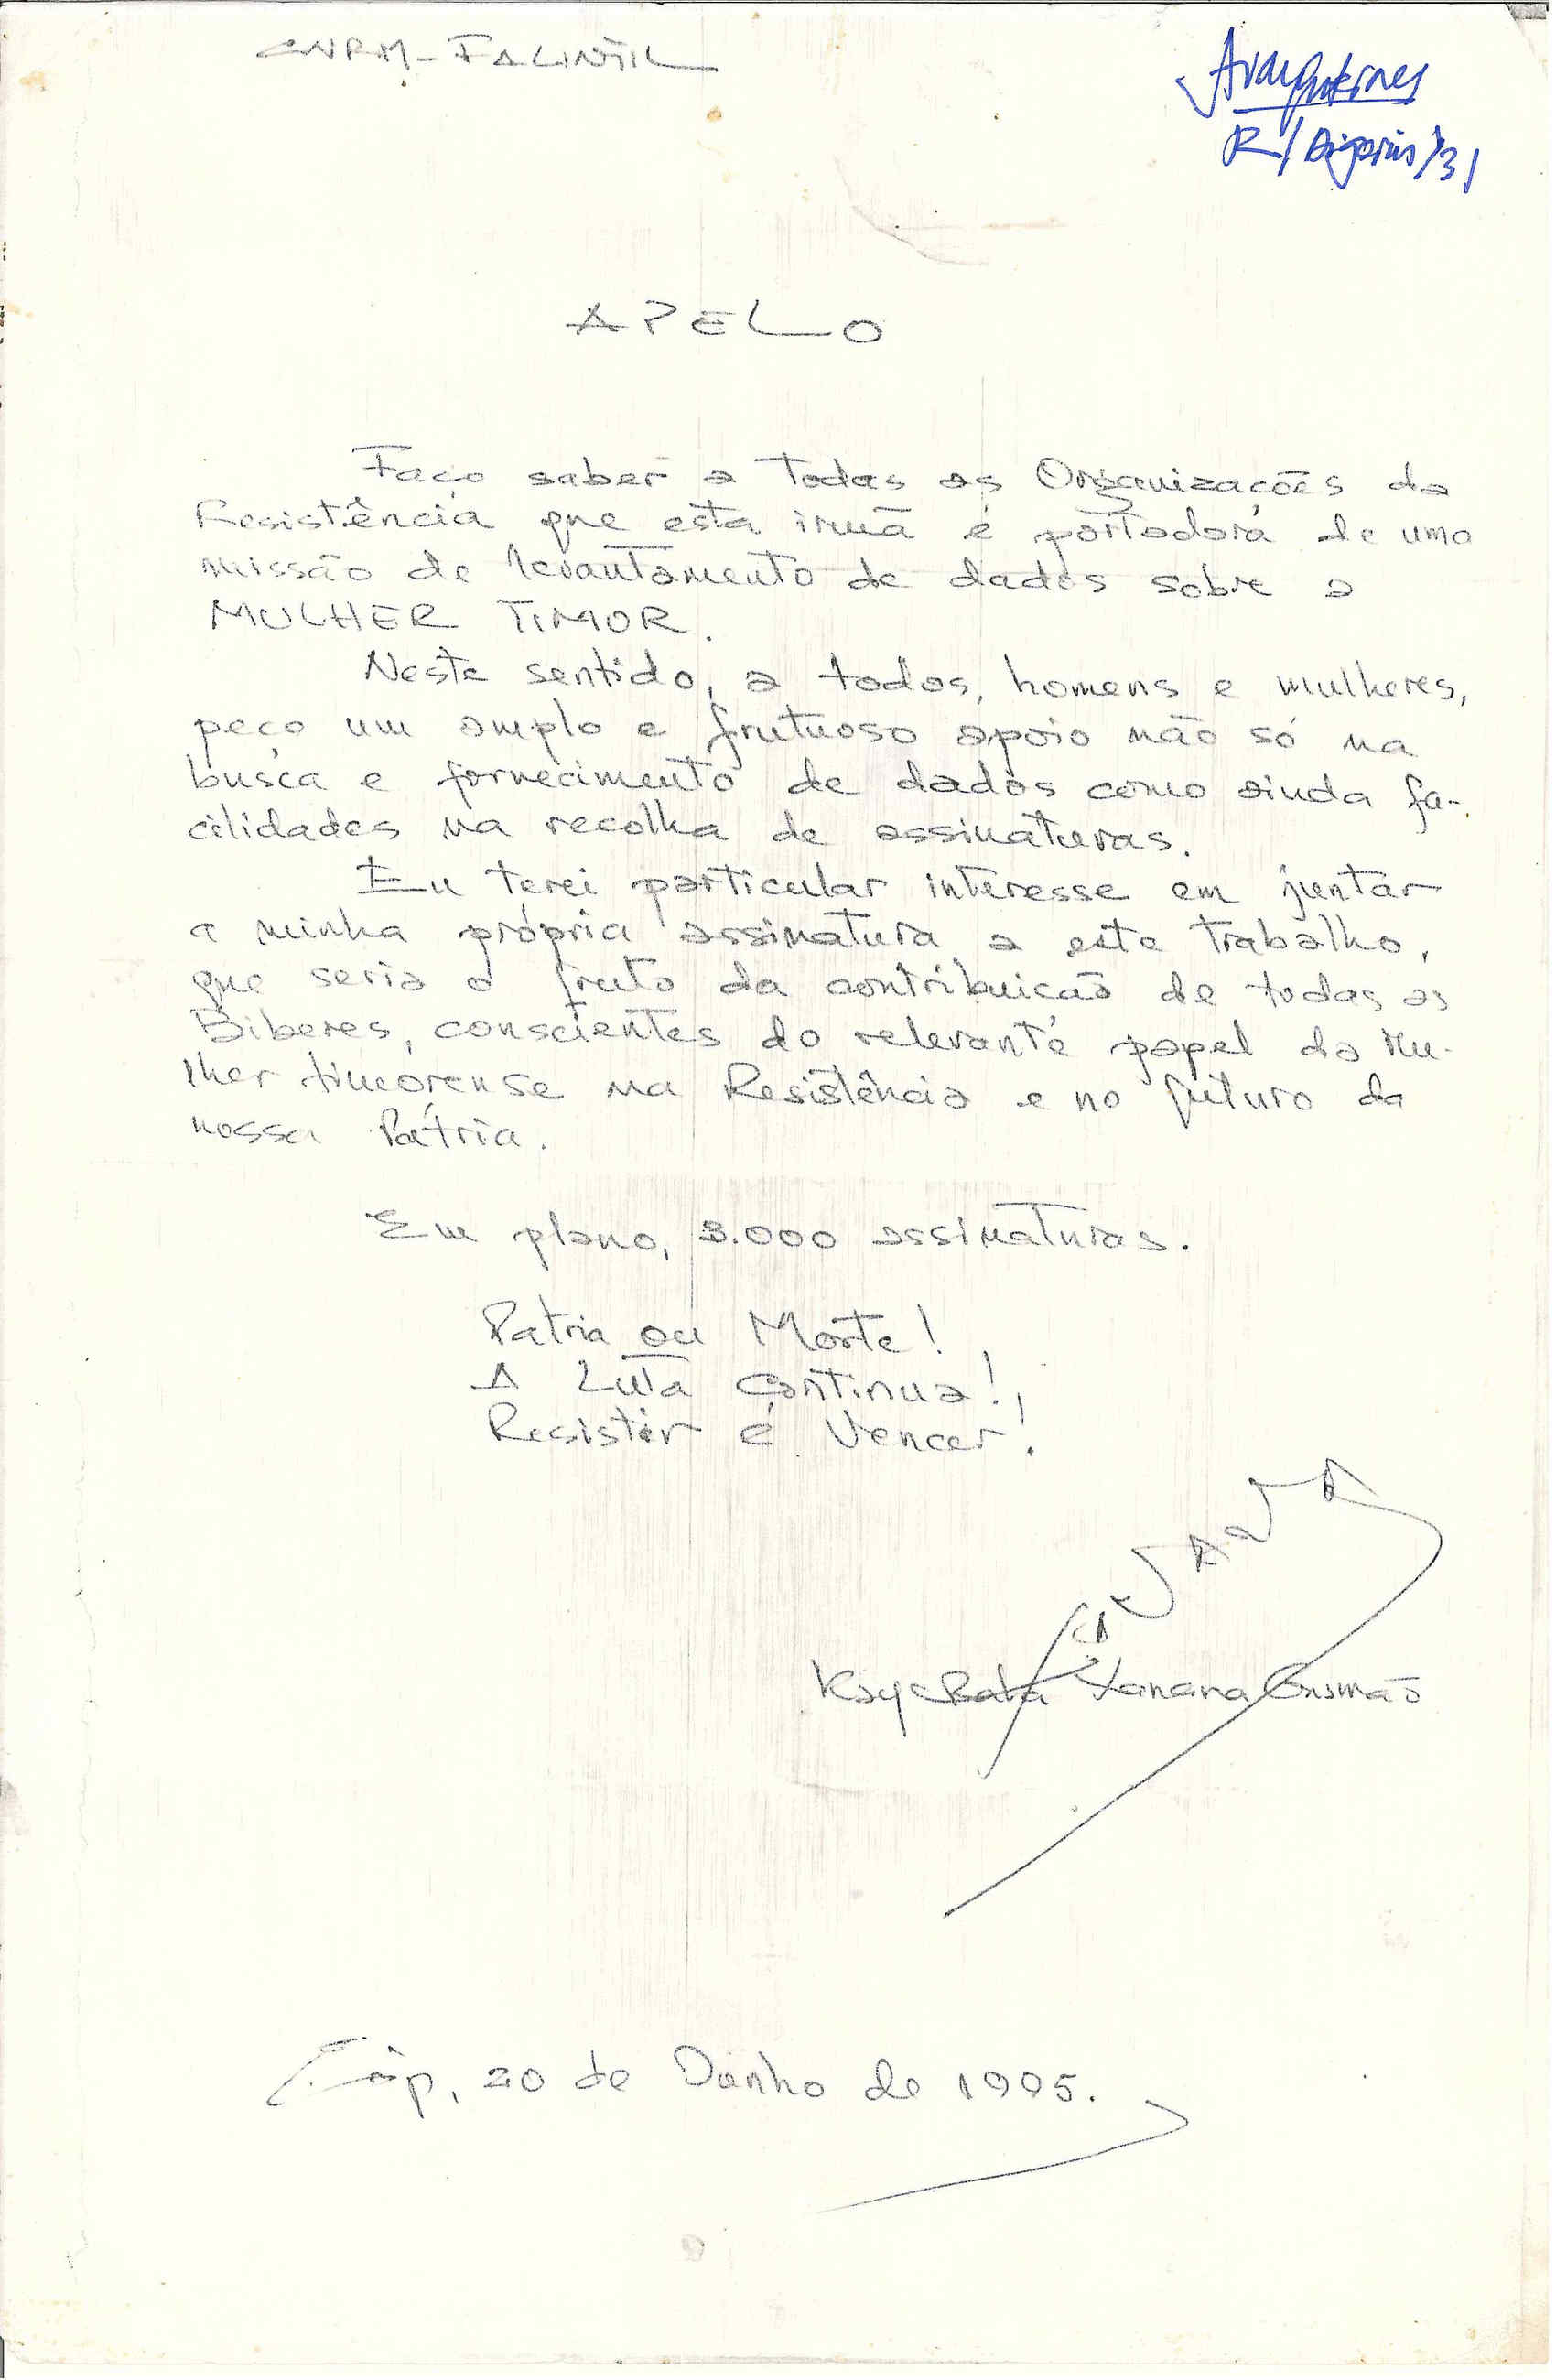 CNRM-FALINTIL
APELO
Faço saber a todas as Organizações da
Resistência que esta irmã é portadora de uma
missão de levantamento de dados sobre a
MULHER TIMOR.
Neste sentido, a todos, homens e mulheres,
peço um amplo e frutuoso apoio não só na
busca e fornecimento de dados como ainda fa-
cilidades na recolha de assinaturas.
Eu terei particular interesse em juntar
a minha própria assinatura a este trabalho,
que seria o fruto da contribuicão de todas as
Biberes, conscientes do relevante papel da Mu-
lher timorense na Resistência e no futuro da
nossa Pátria.
Em plano, 3.000 assinaturas.
Patria ou Morte!
A Luta Continua!
Resistir é Vencer!
Kay Rala Xanana Gusmão
20 de Junho de 1995.